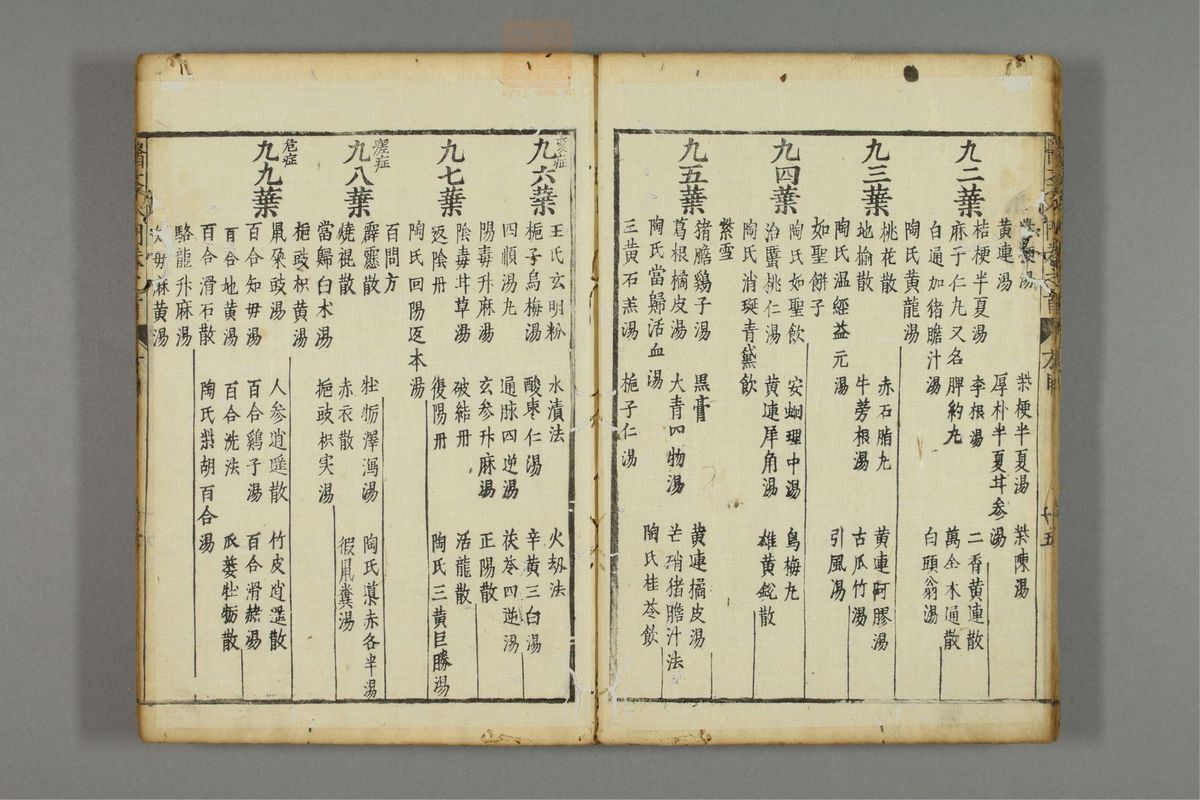 黄連湯 柴梗半夏湯 柴陳湯
桔梗半夏湯 厚朴半夏甘参湯
九二葉
麻子仁丸又名脾約丸 李根湯 二香黄連散
白通加猪膽汁湯 白頭翁湯 萬全木通散
陶氏黄龍湯
九三葉
桃花散 赤石脂丸 黄連阿膠湯
地榆散 牛蒡根湯 古瓜竹湯
陶氏温經益元湯 引風湯
如聖餅子
九四葉
陶氏如聖飲 安蛔理中湯 烏梅丸
治䘌桃仁湯 黄連犀角湯 雄黄銳散
陶氏消斑青黛飲
紫雪
九五葉
猪膽鷄子湯 黒膏 黄連橘皮湯
葛根橘皮湯 大青四物湯 芒硝猪膽汁法
陶氏當歸活血湯 陶氏桂苓飲
三黄石羔湯 梔子仁湯
變症
九六葉
王氏玄明粉 水漬法 火刼法
梔子烏梅湯 酸棗仁湯 辛黄三白湯
四順湯丸 通脉四逆湯 茯苓四逆湯
陽毒升麻湯 玄参升麻湯 正陽散
九七葉
陰毒甘草湯 破結丹 活龍散
返陰丹 復陽丹 陶氏三黄巨勝湯
陶氏回陽返本湯
百問方
壞症
九八葉
霹靂散 牡蠣澤瀉湯 陶氏導赤各半湯
燒裩散 赤衣散 猳鼠糞湯
當歸白术湯 梔豉枳实湯
梔豉枳黄湯
危症
九九葉
鼠屎豉湯 人参逍遥散 竹皮逍遥散
百合知母湯 百合鷄子湯 百合滑赭湯
百合地黄湯 百合洗法 瓜蔞牡蠣散
百合滑石散 陶氏柴胡百合湯
駱龍升麻湯
知母麻黄湯